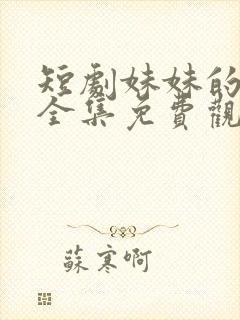 短劇妹妹的
全集免費觀
蘇寒啊